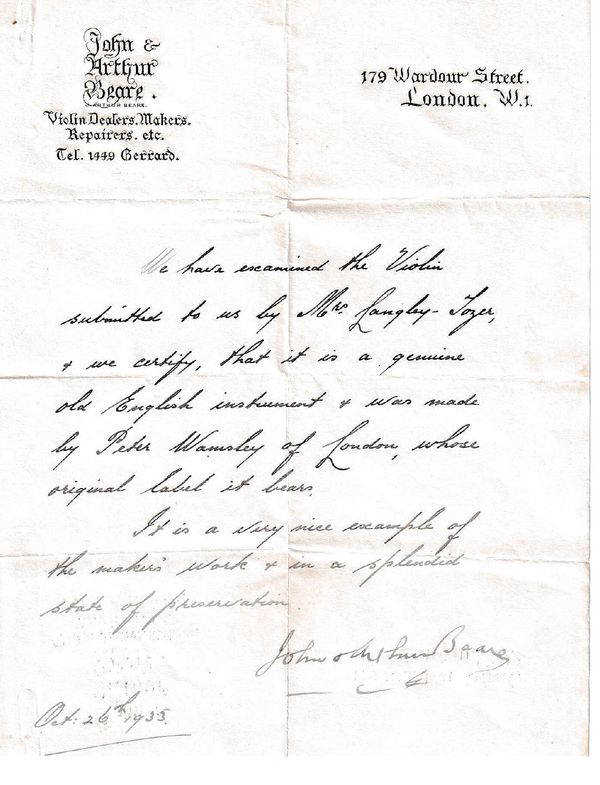 John &
Arthur
Beare.
J. ARTHUR BEARE.
Violin Dealers. Makers.
Repairers. etc.
Tel. 1449 Gerrard.
179 Wardour Street.
London. W.1.
We have examined the Violin
submitted to us by Mrs. Langley-Tozer,
& we certify, that it is a genuine
old English instrument & was made
by Peter Wamsley of London, whose
original label it bears.
It is a very nice example of
the maker's work & in a splendid
state of preservation
John & Arthur Beare
Oct: 26th 1935.